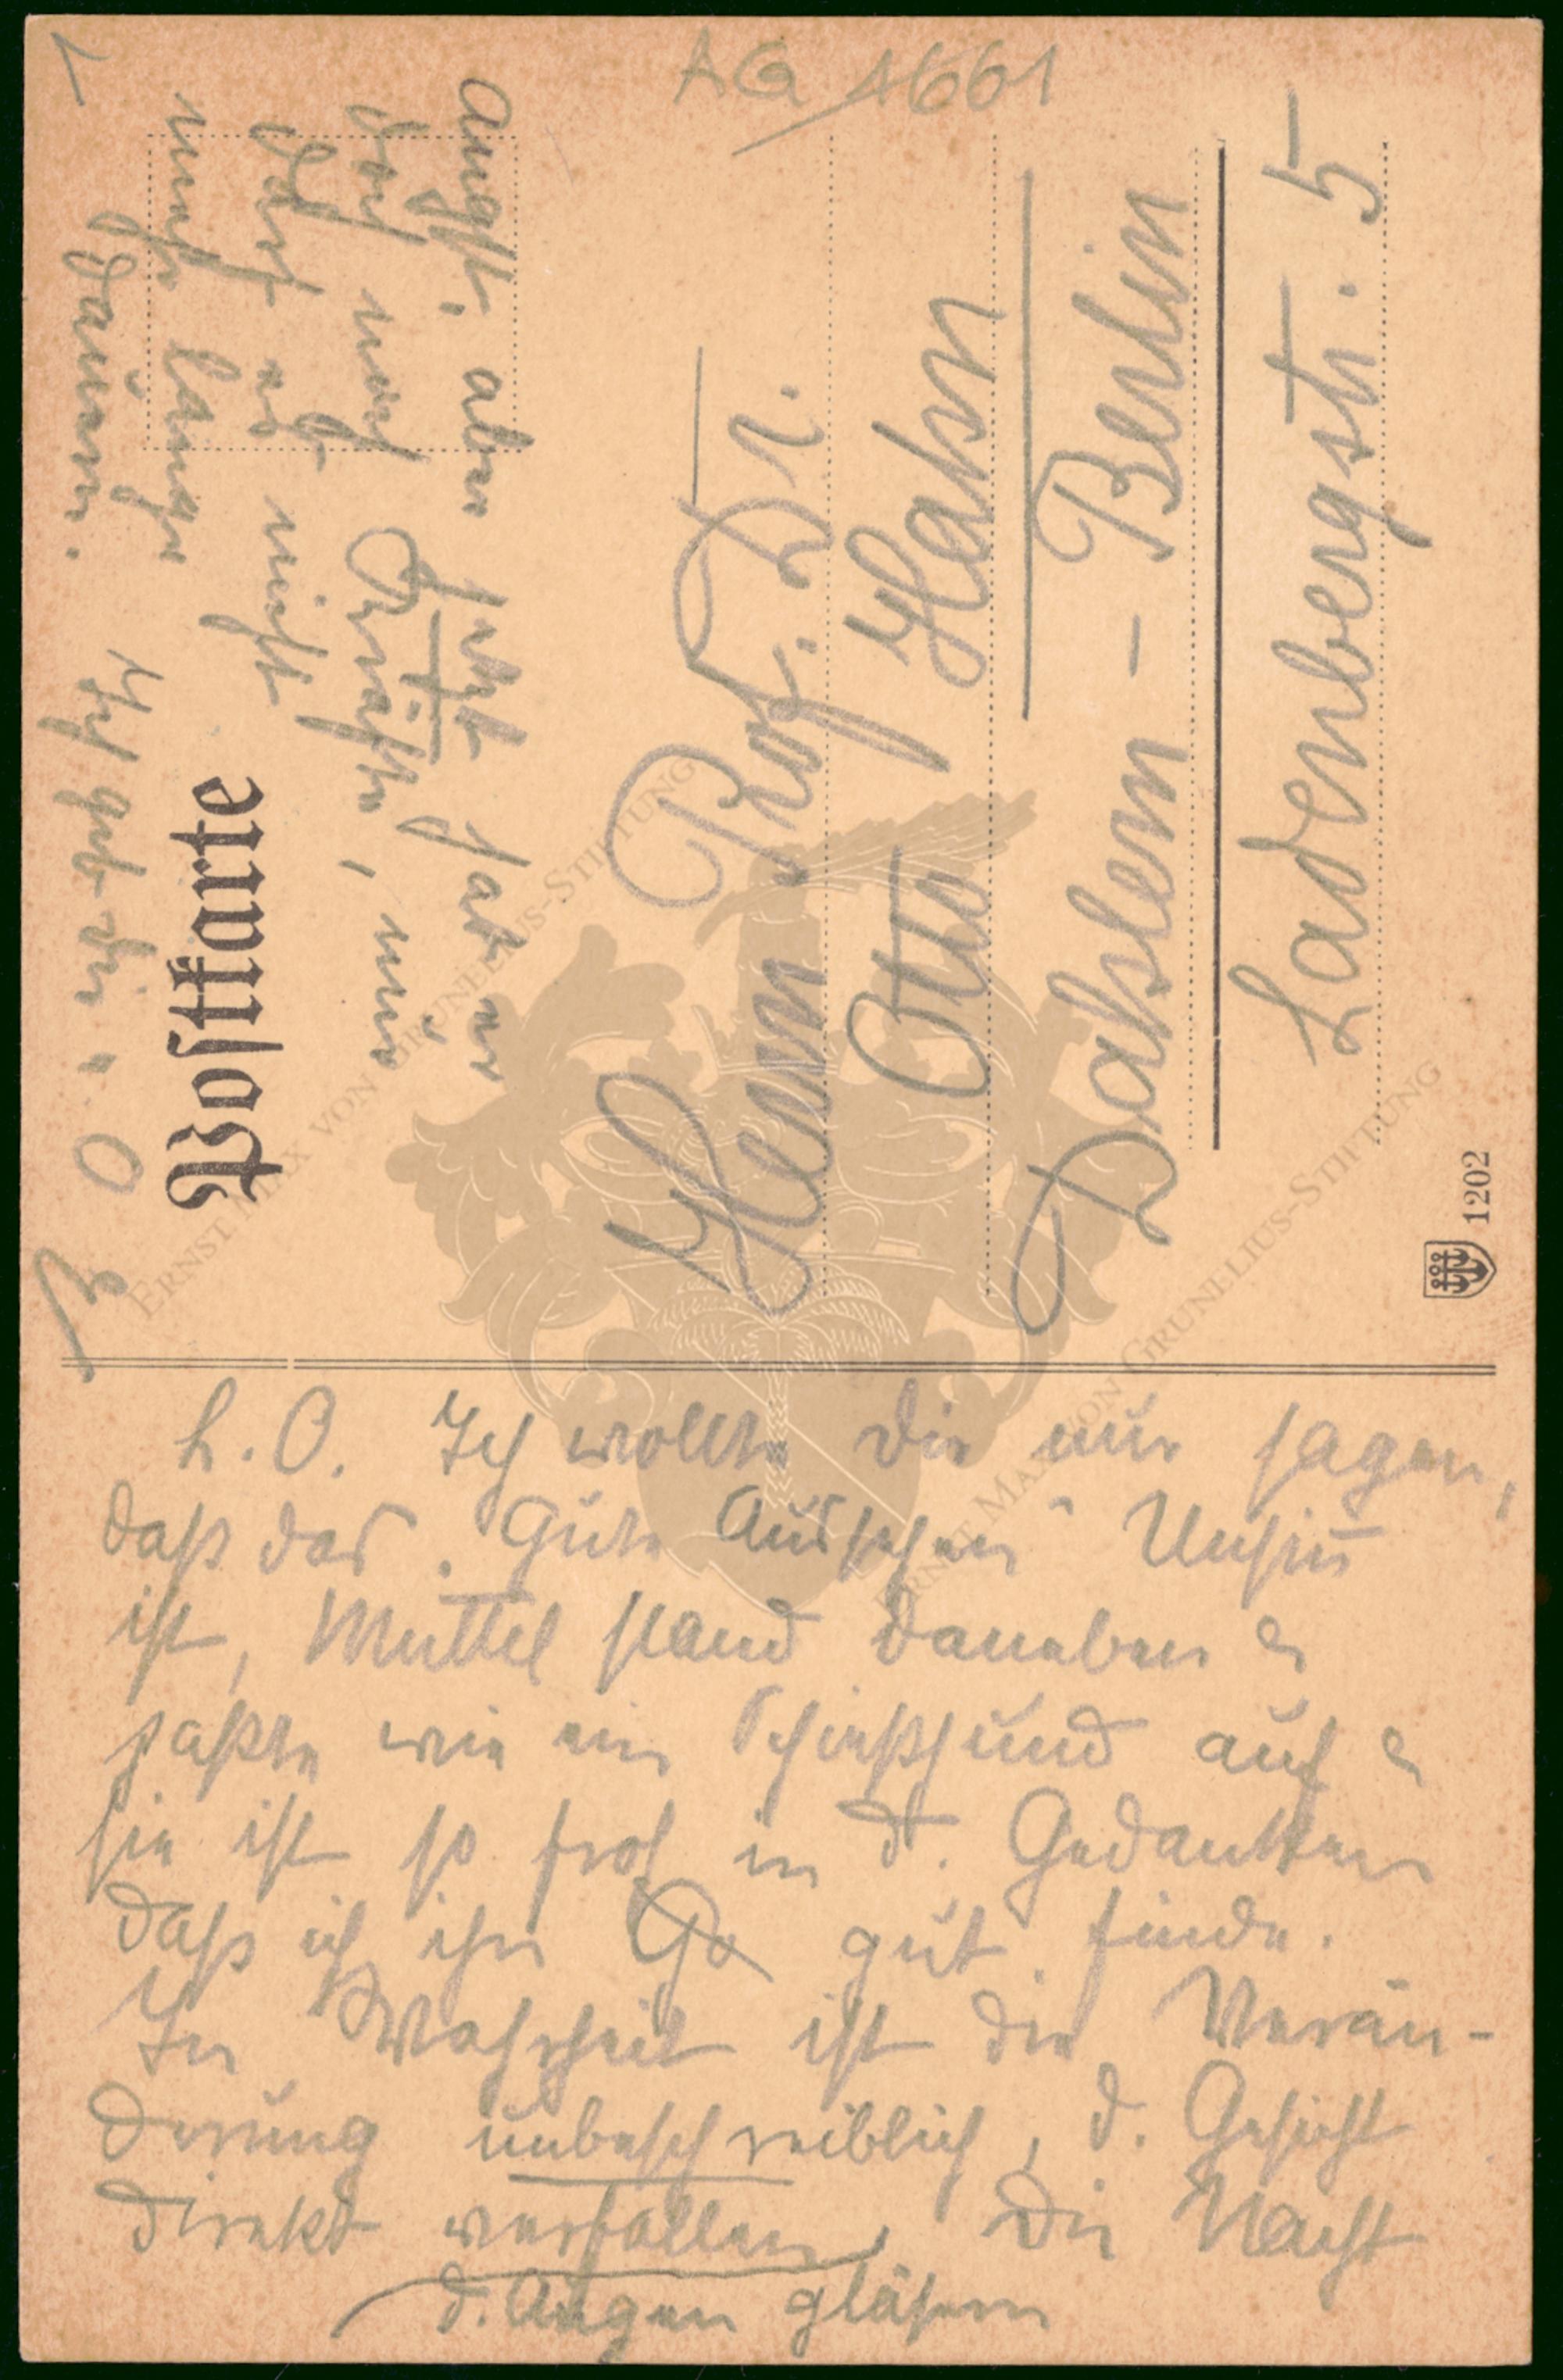 AG 1661
Postkarte
Herrn Prof. Dr.
Otto Hahn
Dahlem - Berlin
Ladenbergstr. 5
1202
L. O. Ich wollte Dir nur sagen,
daß das „Gute Aussehen" Unsinn
ist, Muttel stand daneben u
paßte wie ein Schießhund auf u
sie ist so froh in d. Gedanken
daß ich ihn Ge gut finde.
In Wahrheit ist die Verän-
derung unbeschreiblich, d. Gesicht
direkt verfallen, Die Nacht
d. Augen gläsern
Angst, aber jetzt hat er
doch noch Kräfte, nur
darf es nicht
mehr lange
dauern.
Ich geb dir
ERNST MAX VON GRUNELIUS-STIFTUNG
ERNST MAX VON GRUNELIUS-STIFTUNG